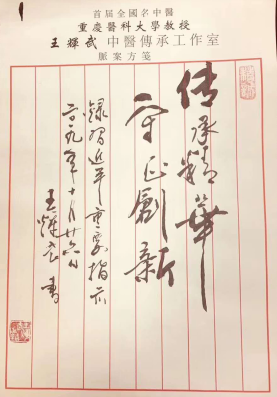 首届全國名中醫
重慶醫科大學教授
王輝武 中醫傳承工作室
脈案方笺
传承精華
守正創新
錄習近平重要指示
二〇一九年十月廿六日
王輝武 书